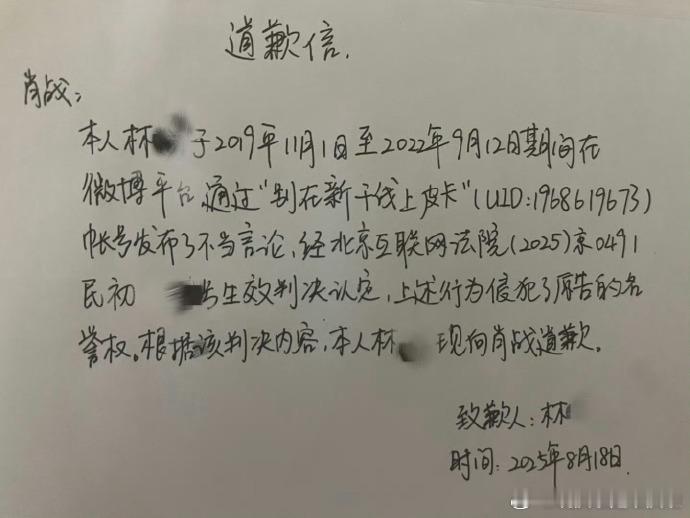 道歉信.
肖战：
本人林 于2019年11月1日至2022年9月12日期间在
微博平台,通过"别在新干线上皮卡"(UID:1968619673)
帐号发布了不当言论,经北京互联网法院(2025)京0491
民初 号生效判决认定,上述行为侵犯了原告的名
誉权。根据该判决内容,本人林 现向肖战道歉。
致歉人：林
时间：2025年8月18日.